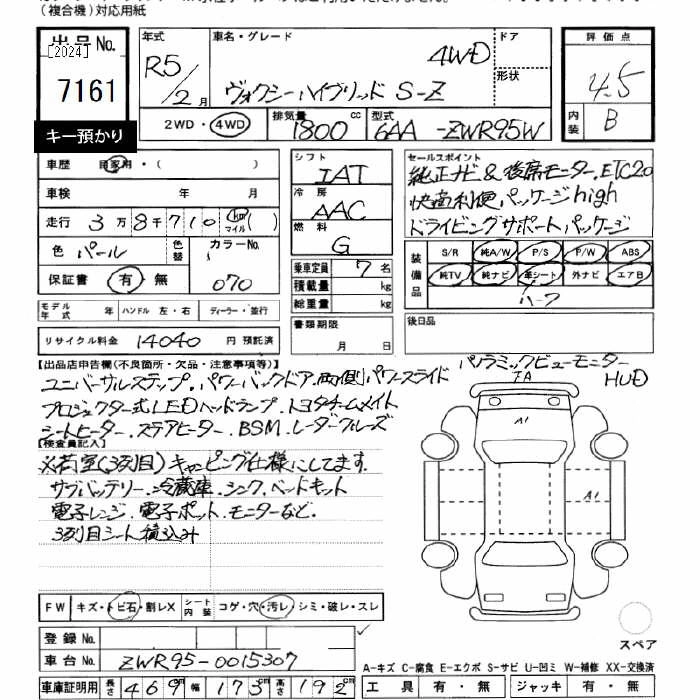 (複合機)対応用紙
出品No.
[2024]
7161
キー預かり
年式 車名・グレード ドア
R5/2月 ヴォクシーハイブリッド S-Z 4WD
形状
2WD・4WD 排気量 1800cc 型式 6AA-ZWR95W
評価点
4.5
内装 B
車歴 自家用・( )
車検 年 月
走行 3万8千710 km マイル ( )
色 パール 色替 カラーNo. 070
保証書 有・無
シフト IAT
冷房 AAC
燃料 G
乗車定員 7名
積載量 kg
総重量 kg
書類期限 月 日
セールスポイント
純正ナビ&後席モニター.ETC2.0
快適利便パッケージhigh
ドライビングサポートパッケージ
装備品 S/R 純A/W P/S P/W ABS
純TV 純ナビ 革シート 外ナビ エアB
ハーフ
後日品
モデル年式 年 ハンドル 左・右 ディーラー・並行
リサイクル料金 14040円 預託済
【出品店申告欄(不良箇所・欠品・注意事項等)】
パノラミックビューモニター
HUD
ユニバーサルステップ.パワーバックドア.両側パワースライド
プロジェクター式LEDヘッドランプ.トヨタチームメイト
シートヒーター.ステアヒーター.BSM.レーダークルーズ
【検査員記入】
※荷室(3列目)キャンピング仕様にしてます.
サブバッテリー.冷蔵庫.シンク.ベッドキット
電子レンジ.電子ポット.モニターなど.
3列目シート積込み
FA
A1
A1
スペア
FW キズ・トビ石・割レX シート内装 コゲ・穴・汚レ・シミ・破レ・スレ
登録No.
車台No. ZWR95-0015307
車庫証明用 長さ 469cm 幅 173cm 高さ 192cm
A-キズ C-腐食 E-エクボ S-サビ U-凹ミ W-補修 XX-交換済
工具 有・無 ジャッキ 有・無